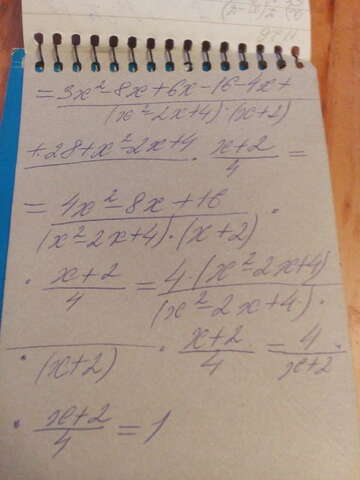 = 3x² - 8x + 6x - 16 - 4x +
(x² - 2x + 4) · (x + 2)
+ 28 + x² - 2x + 4 · x + 2 =
4
= 4x² - 8x + 16 ·
(x² - 2x + 4) · (x + 2)
· x + 2 = 4 · (x² - 2x + 4)
4 (x² - 2x + 4) ·
· (x + 2) · x + 2 = 4 ·
4 x + 2
· x + 2 = 1
4